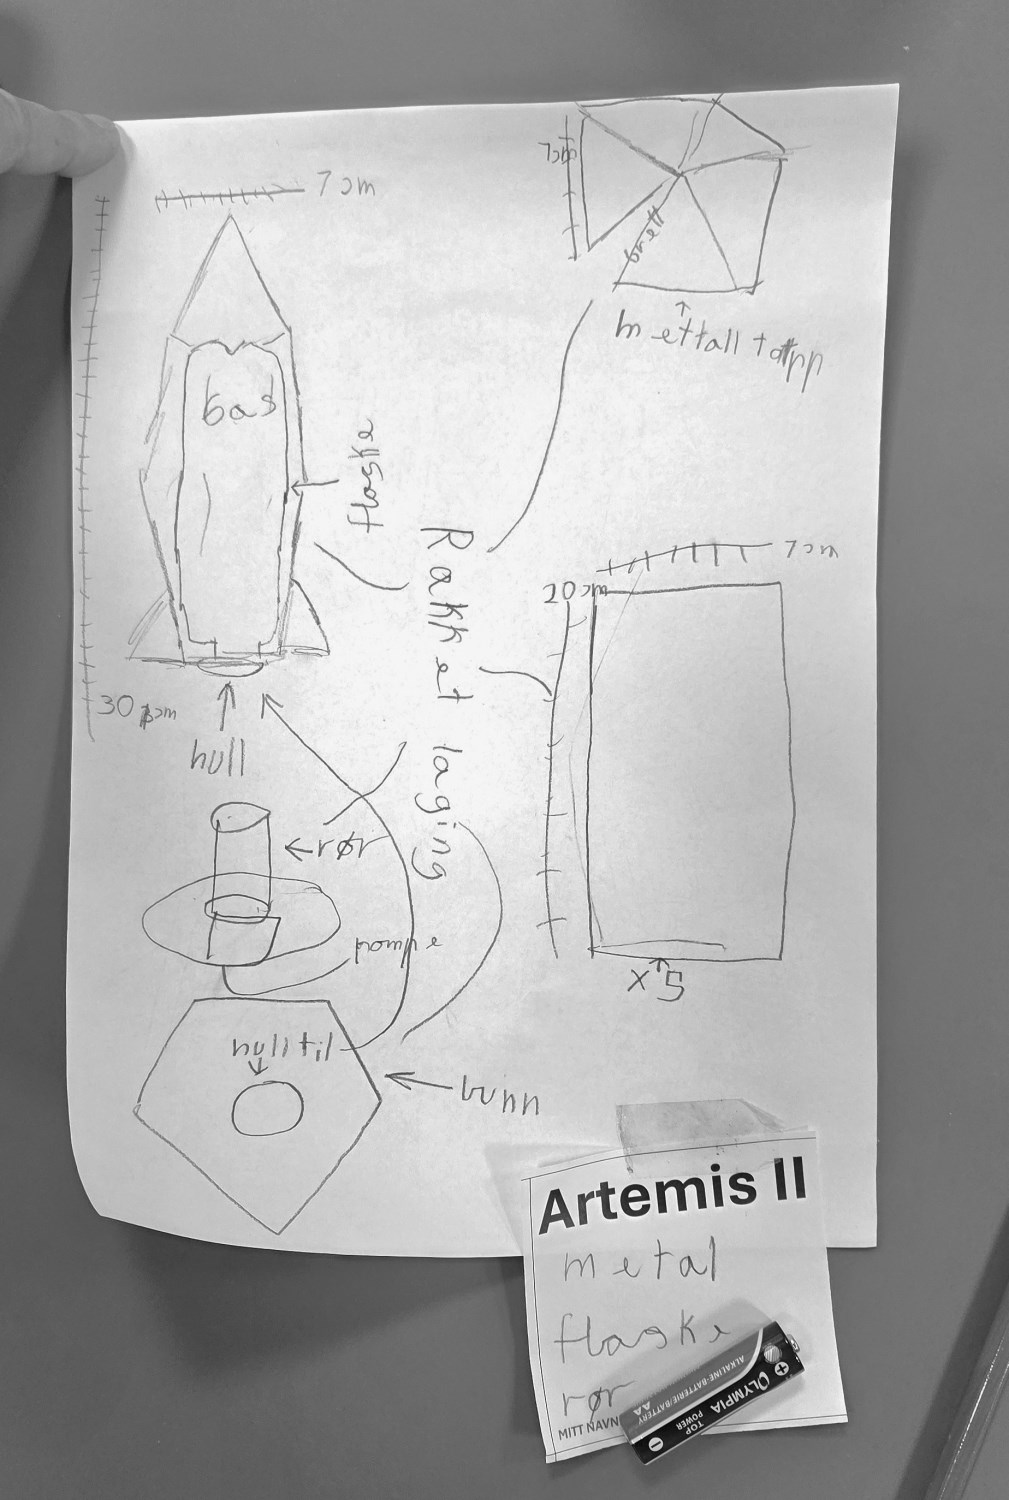 7cm
7cm
brett
mettall topp
gas
flaske
Rakket laging
7cm
20cm
30 cm
hull
rør
pompe
x5
hull til
bunn
Artemis II
metal
flaske
rør
MITT NAVN
ALKALINE-BATTERIE/BATTERY
AA
OLYMPIA
TOP
POWER